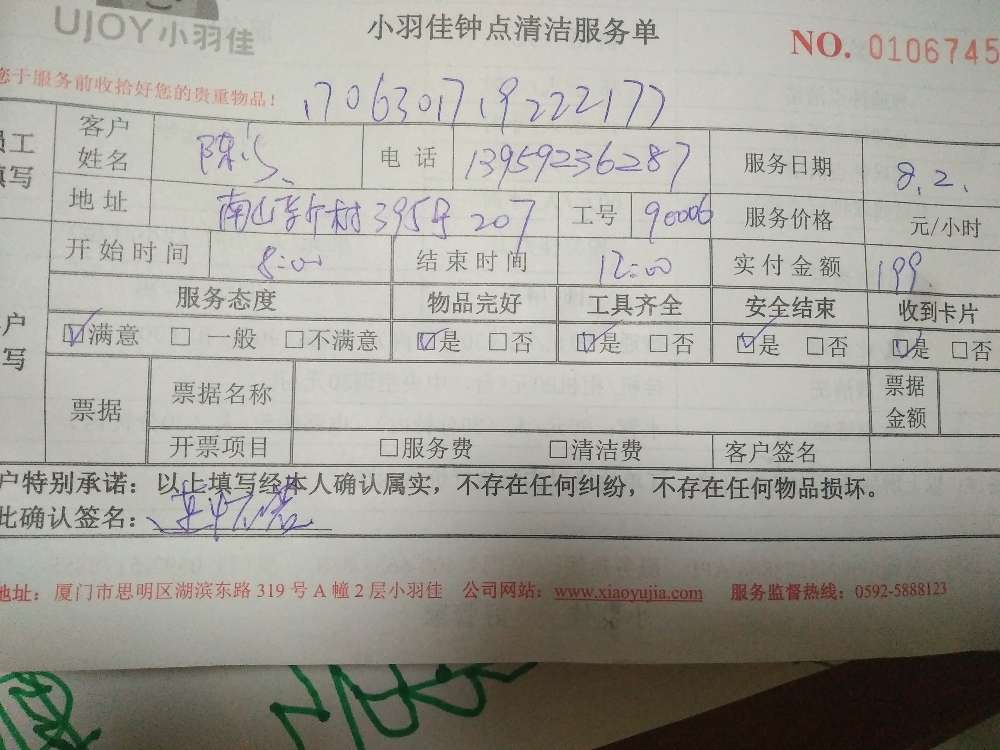 UJOY小羽佳
小羽佳钟点清洁服务单
NO. 0106745
您于服务前收拾好您的贵重物品！
1706301719222177
员工
填写
客户
姓名
陈
电 话
13959236287
服务日期
8.2.
地址
南山新村395号 207
工号
90006
服务价格
元/小时
开始时间
8:00
结束时间
12:00
实付金额
199
户
写
服务态度
物品完好
工具齐全
安全结束
收到卡片
☑满意 □ 一般 □不满意
☑是 □否
☑是 □否
☑是 □否
☑是 □否
票据
票据名称
票据
金额
开票项目
□服务费 □清洁费
客户签名
户特别承诺：以上填写经本人确认属实，不存在任何纠纷，不存在任何物品损坏。
此确认签名：
地址：厦门市思明区湖滨东路 319 号 A 幢 2 层小羽佳 公司网站：www.xiaoyujia.com 服务监督热线：0592-5888123